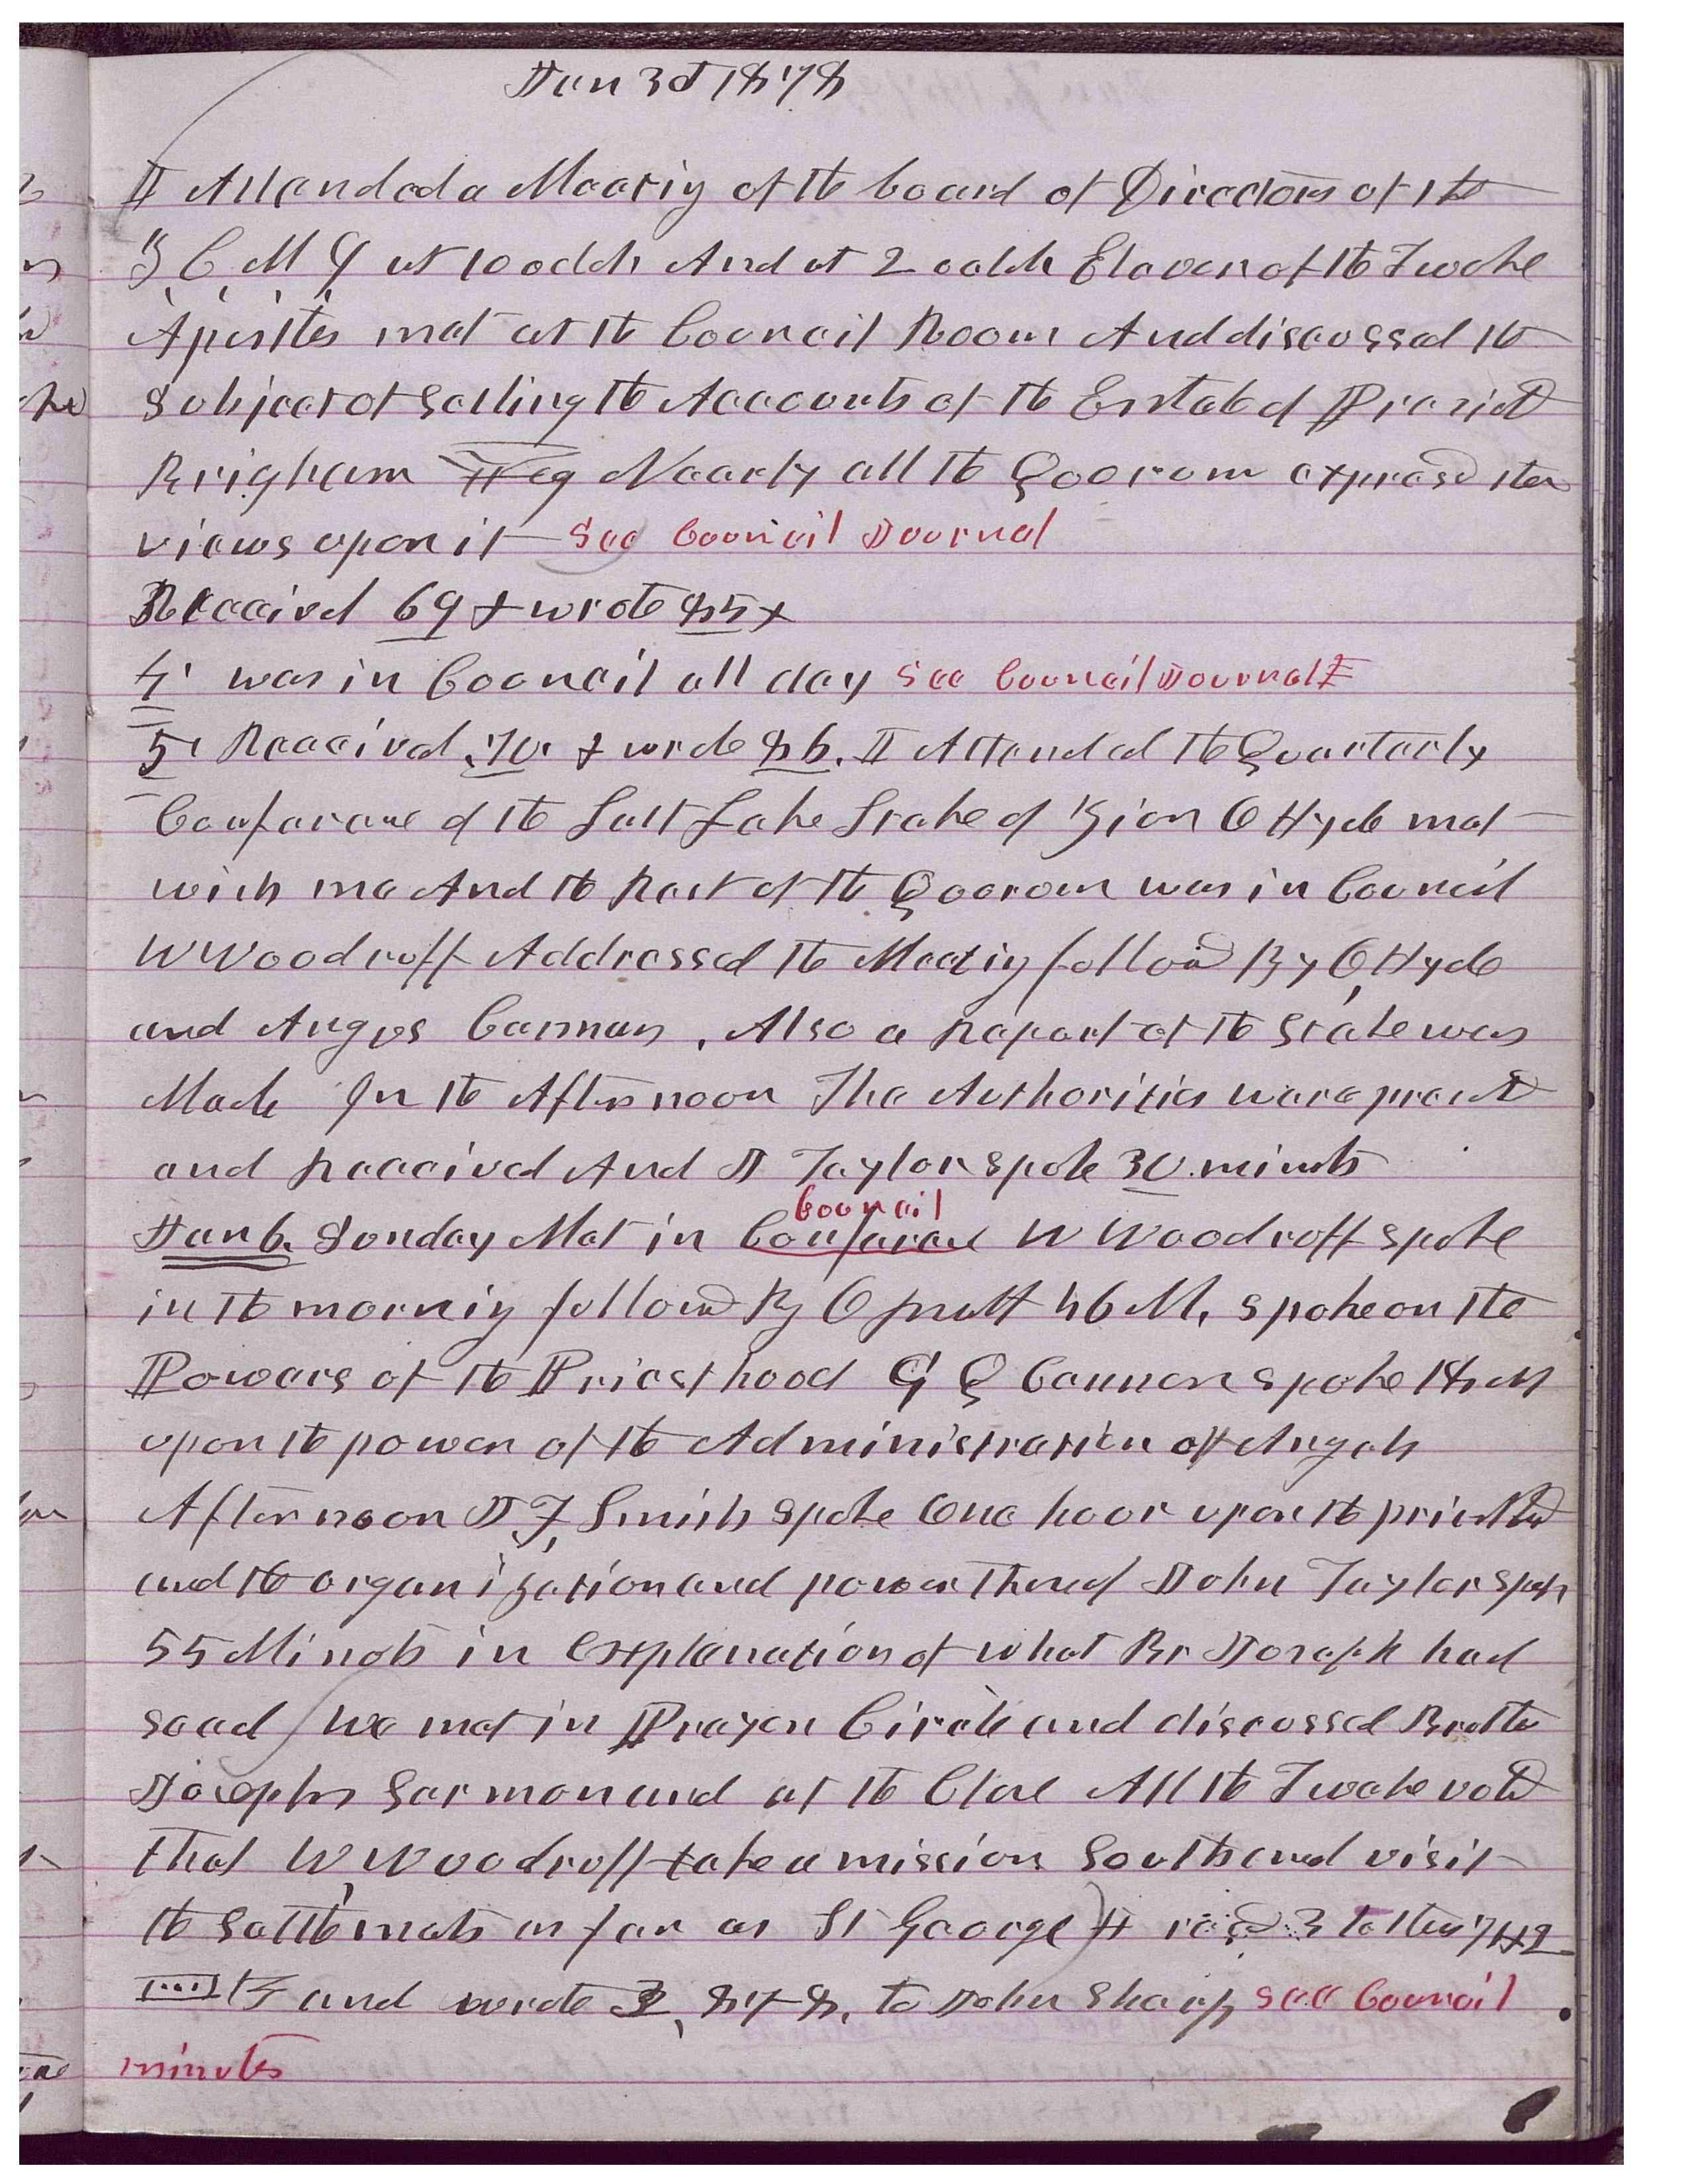 Jan 3d 1878
I Attended a Meeting of the board of Directors of the
Z, C, M, I, at 10 oclok And at 2 oclok Eleven of the Twelve
Apostles met at the Council Room And discussed the
Subject of Settling the Accounts of the Estate of Presidt
Brigham Young Nearly all the Quorum expresed their
views upon it See Council Journal
Received 69 & wrote 85 x
4 was in Council all day See Council Journal
5 Received 70 & wrote 86. I Attended the Quarterly
Conference of the Salt Lake Stake of Zion O Hyde met
with me And the Rest of the Quorum was in Council
W Woodruff Addressed the Meeting followed By O, Hyde
and Angus Cannon, Also a Report of the Stake was
Made In the Afternoon The Authorities were presentd
and Received And J Taylor spoke 30 minuts
Council
Jan 6. Sunday Met in Conference W Woodruff spoke
in the morning followed By O Pratt 46 M, spoke on the
Powers of the Priesthood G Q Cannon spoke 18 M
upon the power of the Administration of Angels
Afternoon J F, Smith spoke One hour upon the priesthood
and the organization and power thereof John Taylor spok
55 Minuts in Explanation of what Br Joseph had
saad We met in Prayer Circle and discussed Brother
Josephs Sermon and at the Close All the Twelve voted
that W, Woodruff take a mission South and visit
the Settlements as far as St George) I recd 3 letters
and wrote 3, 87-8, to John Sharp See Council
minutes